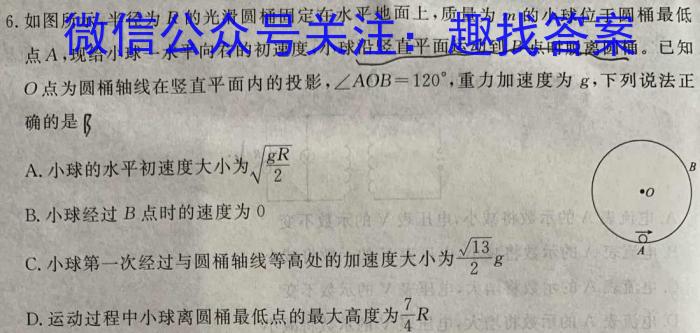 6. 如图所示,半径为 R 的光滑圆桶固定在水平地面上,质量为 m 的小球位于圆桶最低
微信公众号关注:趣找答案
点 A,现给小球一水平向右的初速度,小球沿竖直平面 到 B 点时脱离圆桶。已知
O 点为圆桶轴线在竖直平面内的投影,∠AOB=120°,重力加速度为 g,下列说法正
确的是
A. 小球的水平初速度大小为√(gR/2)
B. 小球经过 B 点时的速度为 0
C. 小球第一次经过与圆桶轴线等高处的加速度大小为 √13/2 g
D. 运动过程中小球离圆桶最低点的最大高度为 7/4 R
B
O
A